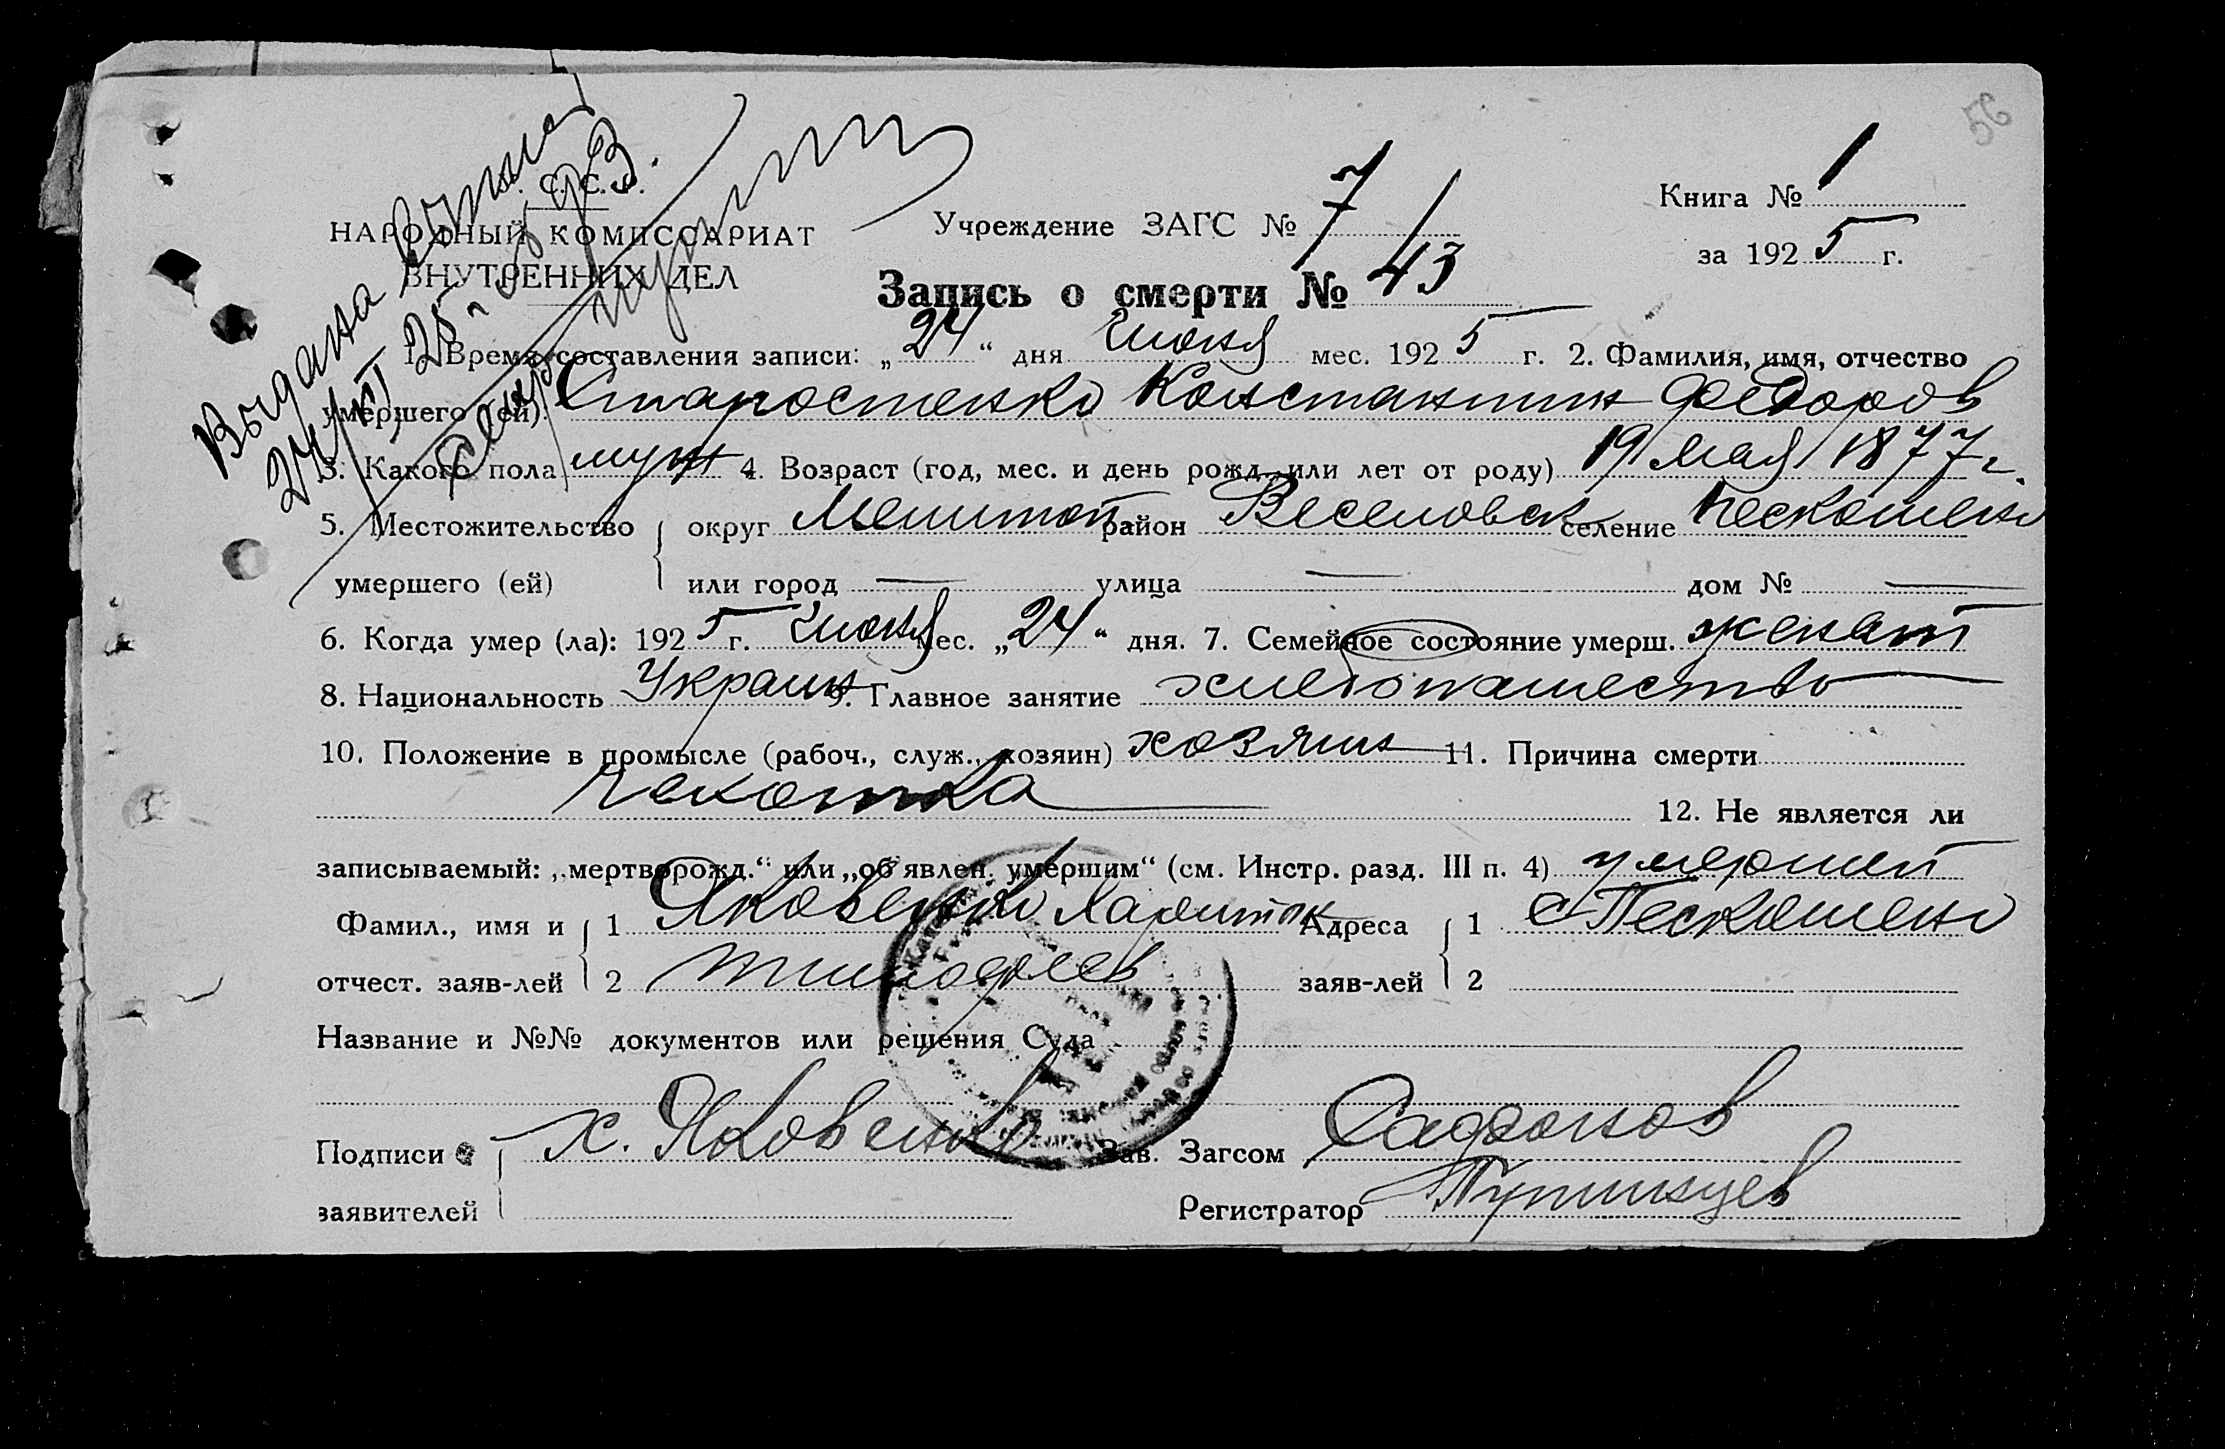 56
Выдана выпись
24/VI 25 г.
НАРОДНЫЙ КОМИССАРИАТ
ВНУТРЕННИХ ДЕЛ
Учреждение ЗАГС № 7
Книга № 1
за 1925 г.
Запись о смерти № 43
1. Время составления записи: „24“ дня Июня мес. 1925 г. 2. Фамилия, имя, отчество
умершего (ей): Старостенко Константин Федоров
3. Какого пола муж 4. Возраст (год, мес. и день рожд. или лет от роду) 19 мая 1877 г.
5. Местожительство умершего (ей) { округ Мелитоп район Веселовск селение Пескошено
или город — улица — дом № —
6. Когда умер (ла): 1925 г. Июня мес. „24“ дня. 7. Семейное состояние умерш. женат
8. Национальность Украин 9. Главное занятие хлебопашество
10. Положение в промысле (рабоч., служ., хозяин) хозяин 11. Причина смерти
чахотка 12. Не является ли
записываемый: „мертворожд.“ или „об'явлен. умершим“ (см. Инстр. разд. III п. 4) умерший
Фамил., имя и отчест. заяв-лей { 1 Яковенко Харитон Адреса заяв-лей { 1 с Пескошено
2 Тимофеев 2
Название и №№ документов или решения Суда
Подписи заявителей { Х. Яковенко Зав. Загсом
Регистратор